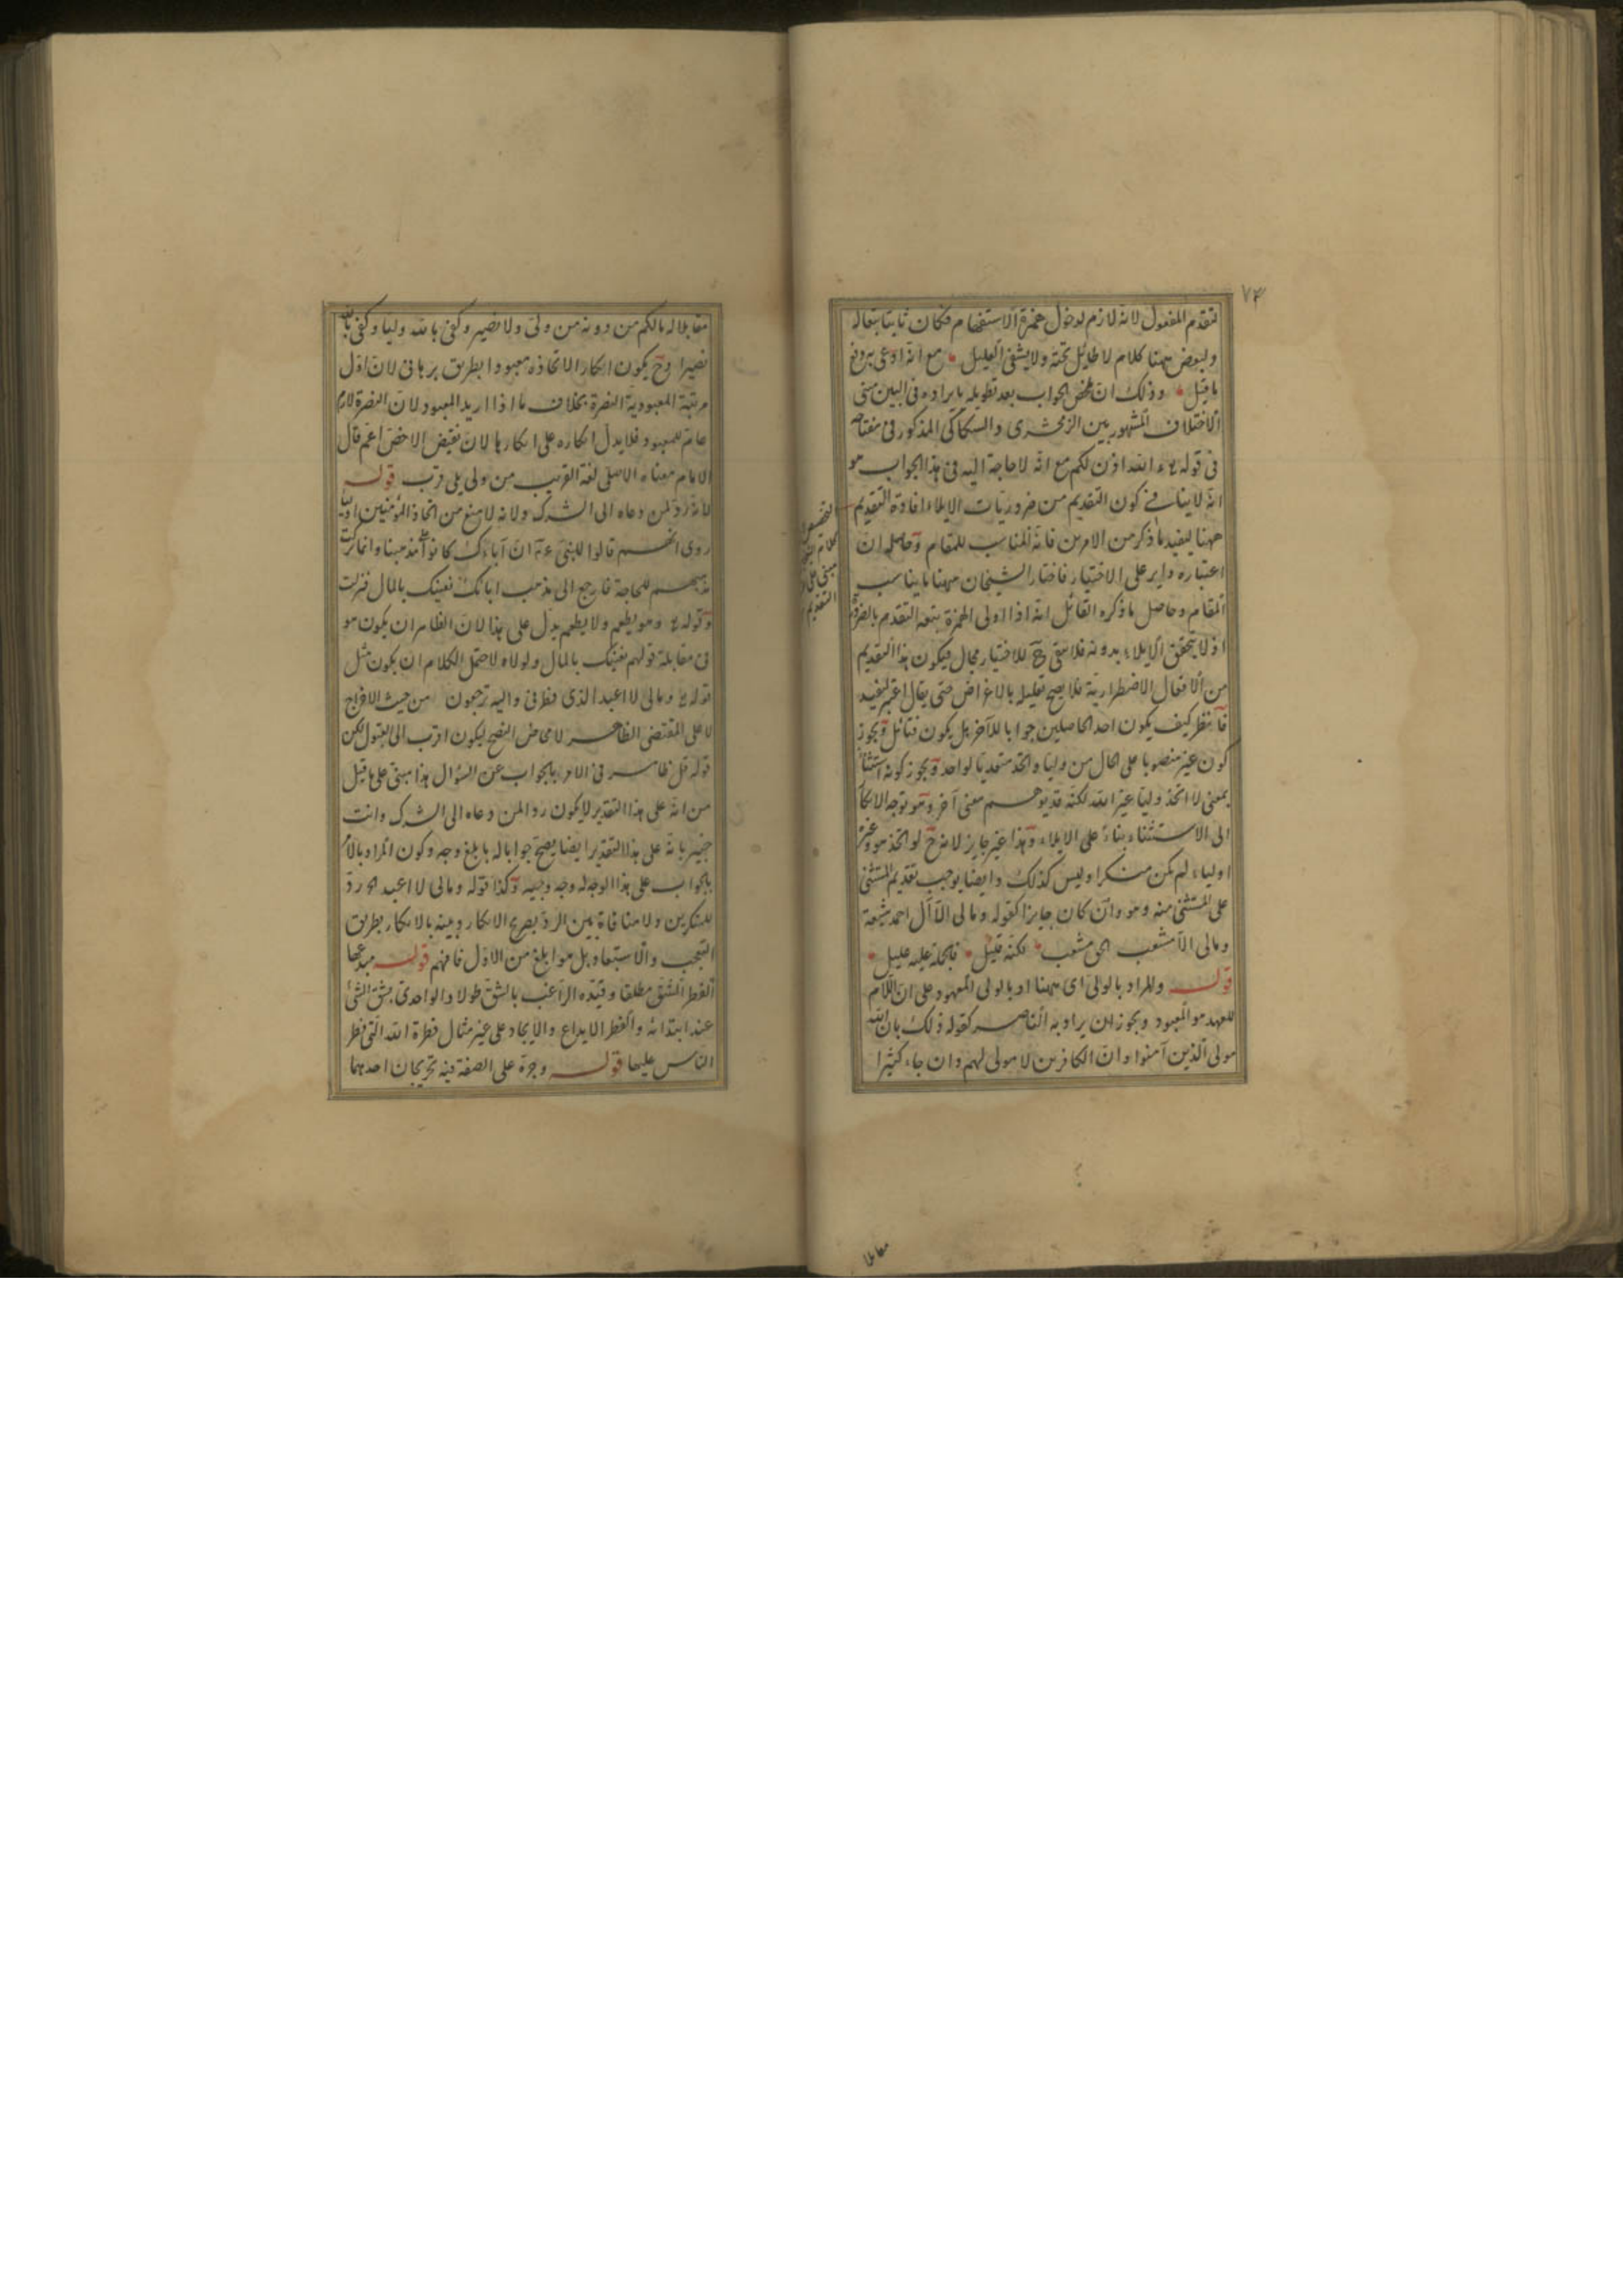 ٧٣
لتقدم المفعول لانه لازم لدخول همزة الاستفهام فكان ثابتا بتعاله
ولبعض ههنا كلام لا طائل تحته ولا يشفى العليل مع انه ادعى
ما قيل وذلك ان ملخص الجواب بعد تطويله بايراده فى البين
الاختلاف المشهور بين الزمخشرى والسكاكى المذكور فى مفتاحه
فى قوله تع ءالله اذن لكم مع انه لا حاجة اليه فى هذا الجواب هو
انه لا ينافى كون التقديم من ضروريات الايلاء افادة التقديم
ههنا ليفيد ما ذكر من الامرين فانه المناسب للمقام وحاصله ان
اعتباره داير على الاختيار فاختار الشيخان ههنا ما يناسب
المقام وحاصل ما ذكره القائل انه اذا اولى الهمزة يتبعه التقدم بالضرورة
اذ لا يتحقق الايلاء بدونه فلا يبقى ح للاختيار مجال فيكون هذا التقديم
من الافعال الاضطرارية فلا يصح تعليله بالاغراض حتى يقال اعتبر ليفيد
فانظر كيف يكون احد الحاصلين جوابا للآخر بل يكون فتأمل ويجوز
كون غير منصوبا على الحال من وليا واتخذ متعديا لواحد ويجوز كونه استثناء
بمعنى لا اتخذ وليا غير الله لكنه قد يوهم معنى آخر وهو توجه الانكار
الى الاستثناء بناء على الايلاء وهذا غير جايز لانه ح لو اتخذ هو وغيره
اولياء لم يكن منكرا وليس كذلك وايضا يوجب تقديم المستثنى
على المستثنى منه وهو وان كان جايزا كقوله ومالى الا آل احمد شيعة
ومالى الا مشعب الحق مشعب لكنه قليل فالحمل عليه عليل
قوله والمراد بالولى اى ههنا او بالولى المعهود على ان اللام
للعهد هو المعبود ويجوز ان يراد به الناصر كقوله ذلك بان الله
مولى الذين آمنوا وان الكافرين لا مولى لهم وان جاء كثيرا
كلام
مبنى على
التقديم
مقابلا
مقابلا له مالكم من دونه من ولى ولا نصير وكفى بالله وليا وكفى بالله
نصيرا وح يكون انكار الاتخاذه معبودا بطريق برهانى لان اول
مرتبة المعبودية النصرة بخلاف ما اذا اريد المعبود لان النصرة لازم
عام للمعبود فلا يدل انكاره على انكارها لان نقيض الاخص اعم قال
الامام معناه الاصلى لغة القريب من ولى يلى قرب قوله
لانه رد لمن دعاه الى الشرك ولانه لا منع من اتخاذ المؤمنين اولياء
روى انهم قالوا للنبى ءم ان آباءك كانوا على مذهبنا وانما تركت
مذهبهم للحاجة فارجع الى مذهب ابائك نغنيك بالمال فنزلت
وقوله تع وهو يطعم ولا يطعم يدل على هذا لان الظاهر ان يكون هو
فى مقابلة قولهم نغنيك بالمال ولولاه لاحتمل الكلام ان يكون مثل
قوله تع ومالى لا اعبد الذى فطرنى واليه ترجعون من حيث الاخراج
لا على المقتضى الظاهر لامحاض النصح ليكون اقرب الى القبول لكن
قوله قل ظاهر فى الامر بالجواب عن السؤال هذا مبنى على ما قيل
من انه على هذا التقدير لا يكون ردا لمن دعاه الى الشرك وانت
خبير بانه على هذا التقدير ايضا يصح جوابا له بابلغ وجه وكون المراد بالامر
بالجواب على هذا الوجه له وجه وجيه وكذا قوله ومالى لا اعبد الخ رد
للمنكرين ولا منافاة بين الرد بصريح الانكار وبينه بالانكار بطريق
التعجب والاستبعاد بل هو ابلغ من الاول فافهم قوله مبدعها
الفطر الشق مطلقا وقيده الراغب بالشق طولا والواحدى بشق الشئ
عند ابتدائه والفطر الابداع والايجاد على غير مثال فطرة الله التى فطر
الناس عليها قوله وجره على الصفة فيه تخريجان احدهما